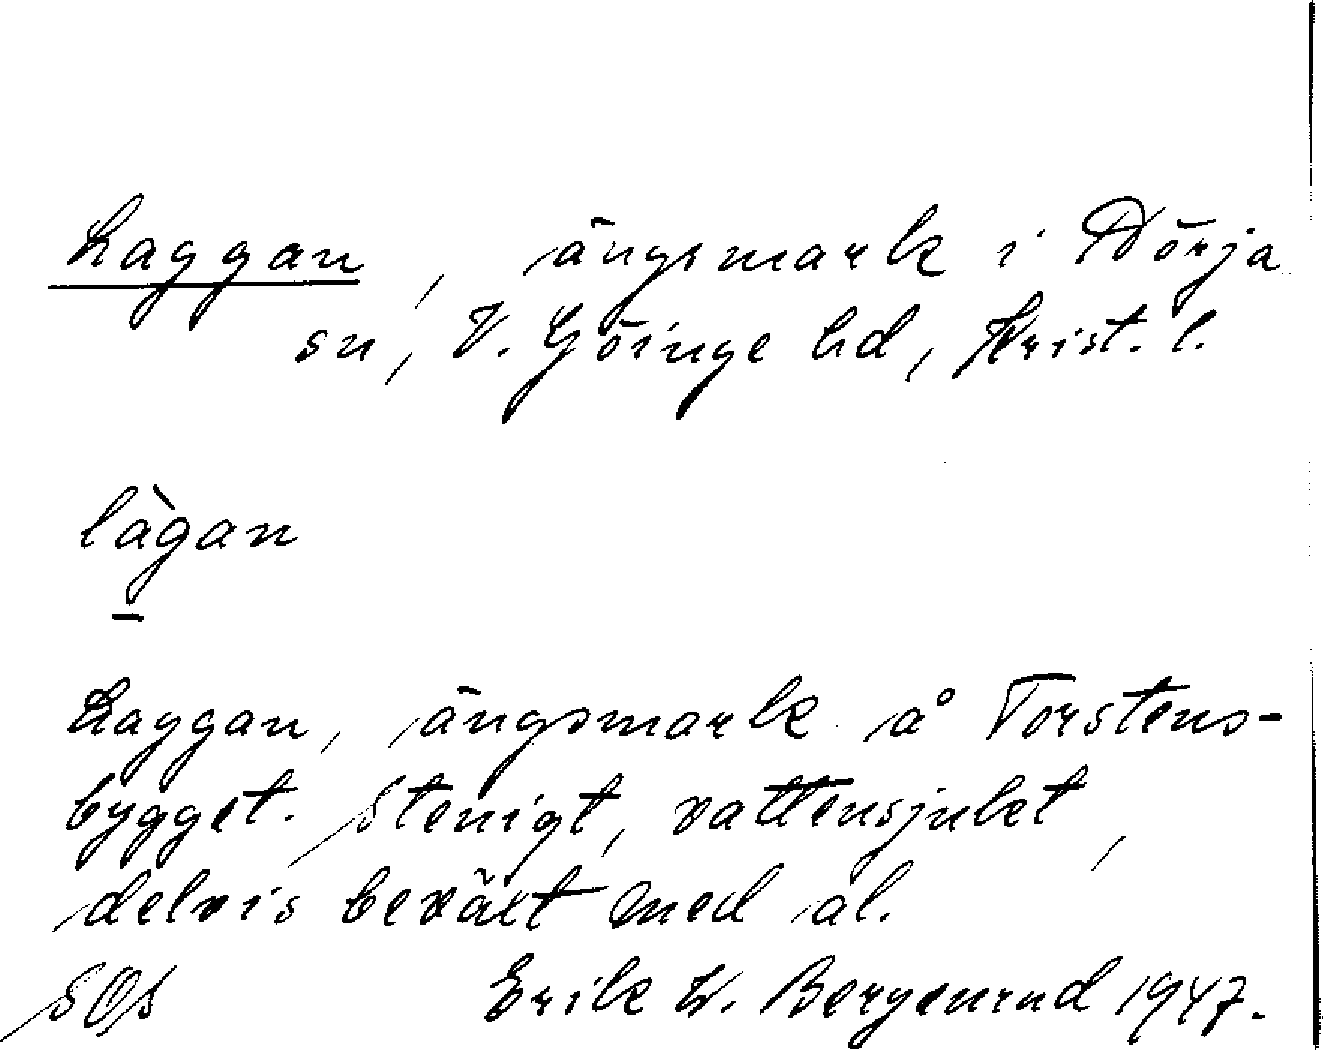 Laggan, ängsmark i Nörja
sn, V. Göinge hd, Krist. l.
làgan
Laggan, ängsmark å Torstens-
bygget. Stenigt, vattensjukt,
delvis beväxt med al.
SOS Erik W. Bergenrud 1947.